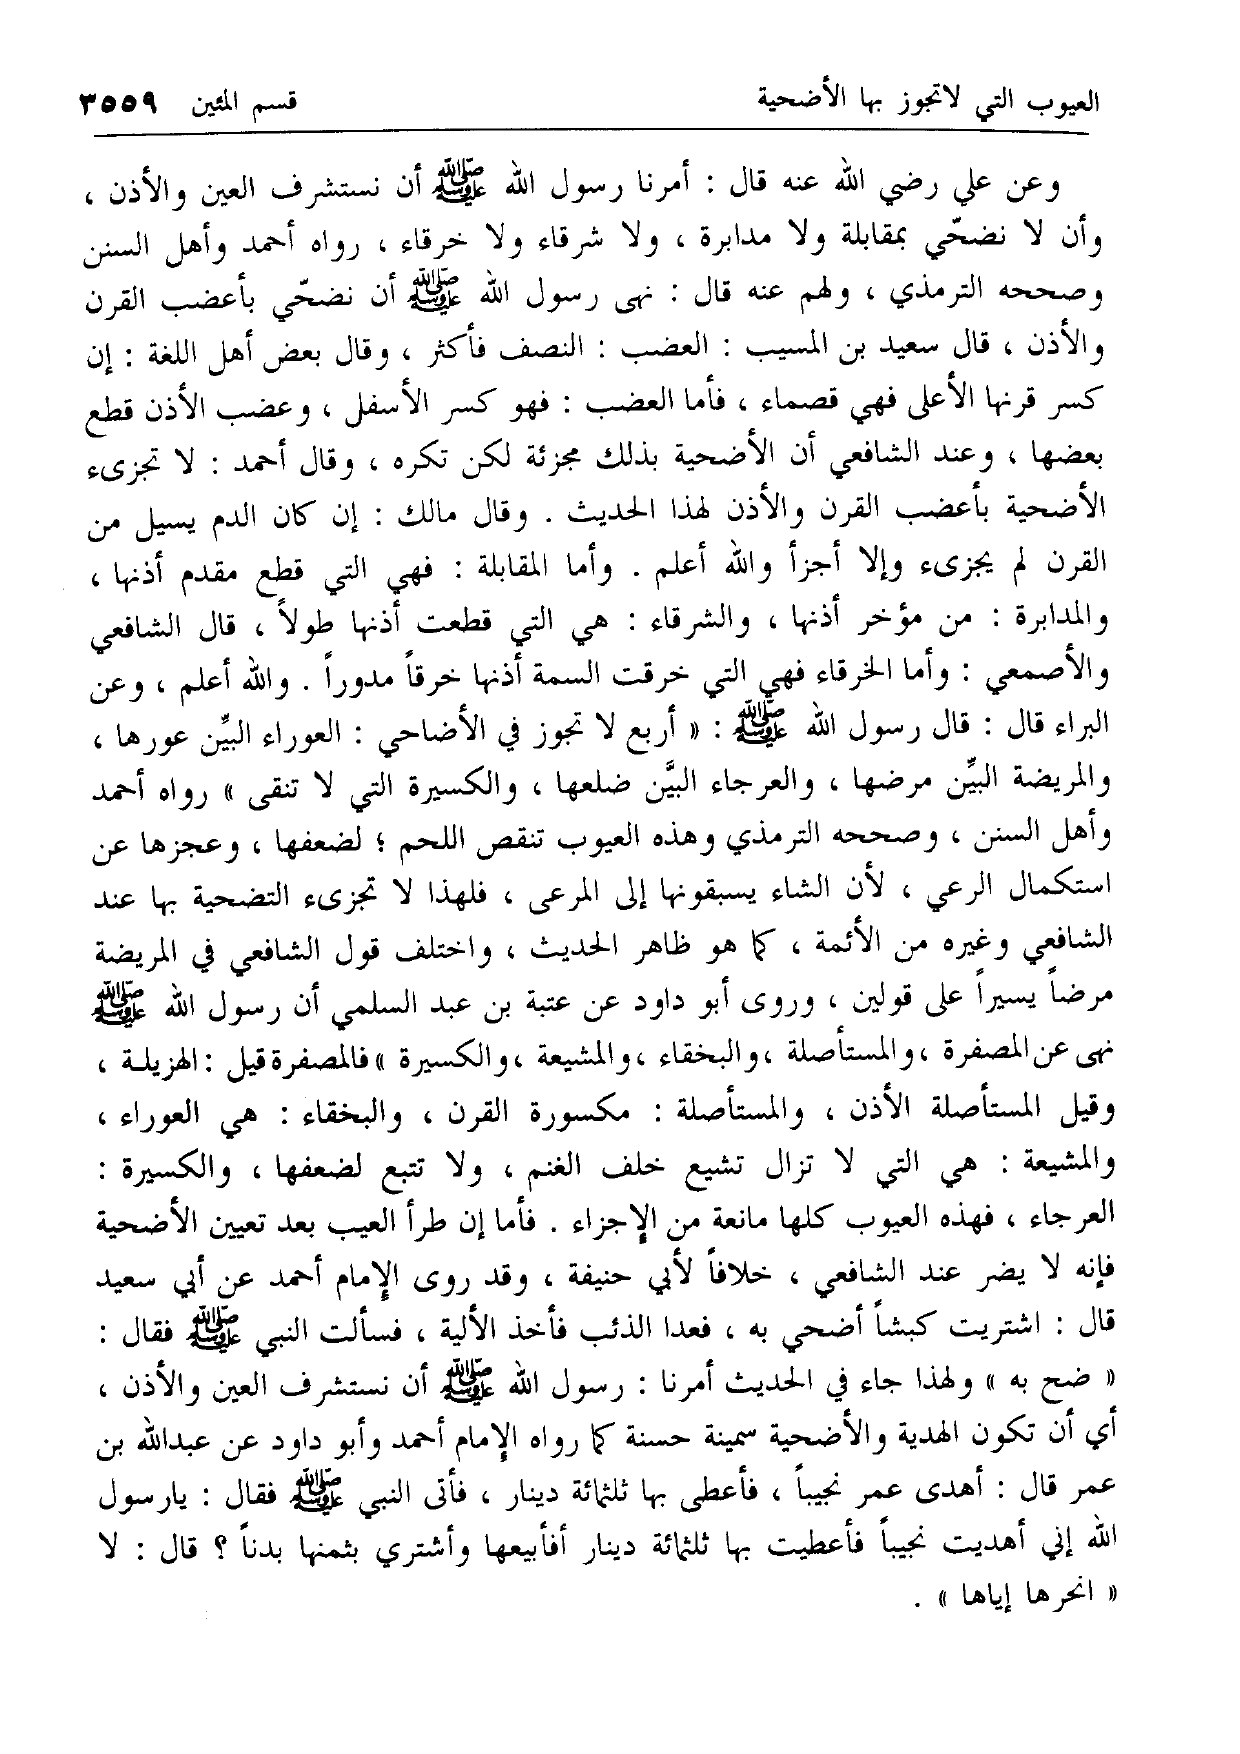 العيوب التي لاتجوز بها الأضحية قسم المئين ٣٥٥٩
وعن علي رضي الله عنه قال : أمرنا رسول الله ﷺ أن نستشرف العين والأذن ،
وأن لا نضحّي بمقابلة ولا مدابرة ، ولا شرقاء ولا خرقاء ، رواه أحمد وأهل السنن
وصححه الترمذي ، ولهم عنه قال : نهى رسول الله ﷺ أن نضحّي بأعضب القرن
والأذن ، قال سعيد بن المسيب : العضب : النصف فأكثر ، وقال بعض أهل اللغة : إن
كسر قرنها الأعلى فهي قصماء ، فأما العضب : فهو كسر الأسفل ، وعضب الأذن قطع
بعضها ، وعند الشافعي أن الأضحية بذلك مجزئة لكن تكره ، وقال أحمد : لا تجزىء
الأضحية بأعضب القرن والأذن لهذا الحديث . وقال مالك : إن كان الدم يسيل من
القرن لم يجزىء وإلا أجزأ والله أعلم . وأما المقابلة : فهي التي قطع مقدم أذنها ،
والمدابرة : من مؤخر أذنها ، والشرقاء : هي التي قطعت أذنها طولاً ، قال الشافعي
والأصمعي : وأما الخرقاء فهي التي خرقت السمة أذنها خرقاً مدوراً . والله أعلم ، وعن
البراء قال : قال رسول الله ﷺ : « أربع لا تجوز في الأضاحي : العوراء البيِّن عورها ،
والمريضة البيِّن مرضها ، والعرجاء البيَّن ضلعها ، والكسيرة التي لا تنقى » رواه أحمد
وأهل السنن ، وصححه الترمذي وهذه العيوب تنقص اللحم ؛ لضعفها ، وعجزها عن
استكمال الرعي ، لأن الشاء يسبقونها إلى المرعى ، فلهذا لا تجزىء التضحية بها عند
الشافعي وغيره من الأئمة ، كما هو ظاهر الحديث ، واختلف قول الشافعي في المريضة
مرضاً يسيراً على قولين ، وروى أبو داود عن عتبة بن عبد السلمي أن رسول الله ﷺ
نهى عن المصفرة ، والمستأصلة ، والبخقاء ، والمشيعة ، والكسيرة » فالمصفرة قيل : الهزيلة ،
وقيل المستأصلة الأذن ، والمستأصلة : مكسورة القرن ، والبخقاء : هي العوراء ،
والمشيعة : هي التي لا تزال تشيع خلف الغنم ، ولا تتبع لضعفها ، والكسيرة :
العرجاء ، فهذه العيوب كلها مانعة من الإجزاء . فأما إن طرأ العيب بعد تعيين الأضحية
فإنه لا يضر عند الشافعي ، خلافاً لأبي حنيفة ، وقد روى الإمام أحمد عن أبي سعيد
قال : اشتريت كبشاً أضحي به ، فعدا الذئب فأخذ الألية ، فسألت النبي ﷺ فقال :
« ضح به » ولهذا جاء في الحديث أمرنا : رسول الله ﷺ أن نستشرف العين والأذن ،
أي أن تكون الهدية والأضحية سمينة حسنة كما رواه الإمام أحمد وأبو داود عن عبدالله بن
عمر قال : أهدى عمر نجيباً ، فأعطى بها ثلثمائة دينار ، فأتى النبي ﷺ فقال : يارسول
الله إني أهديت نجيباً فأعطيت بها ثلثمائة دينار أفأبيعها وأشتري بثمنها بدناً ؟ قال : لا
« انحرها إياها » .